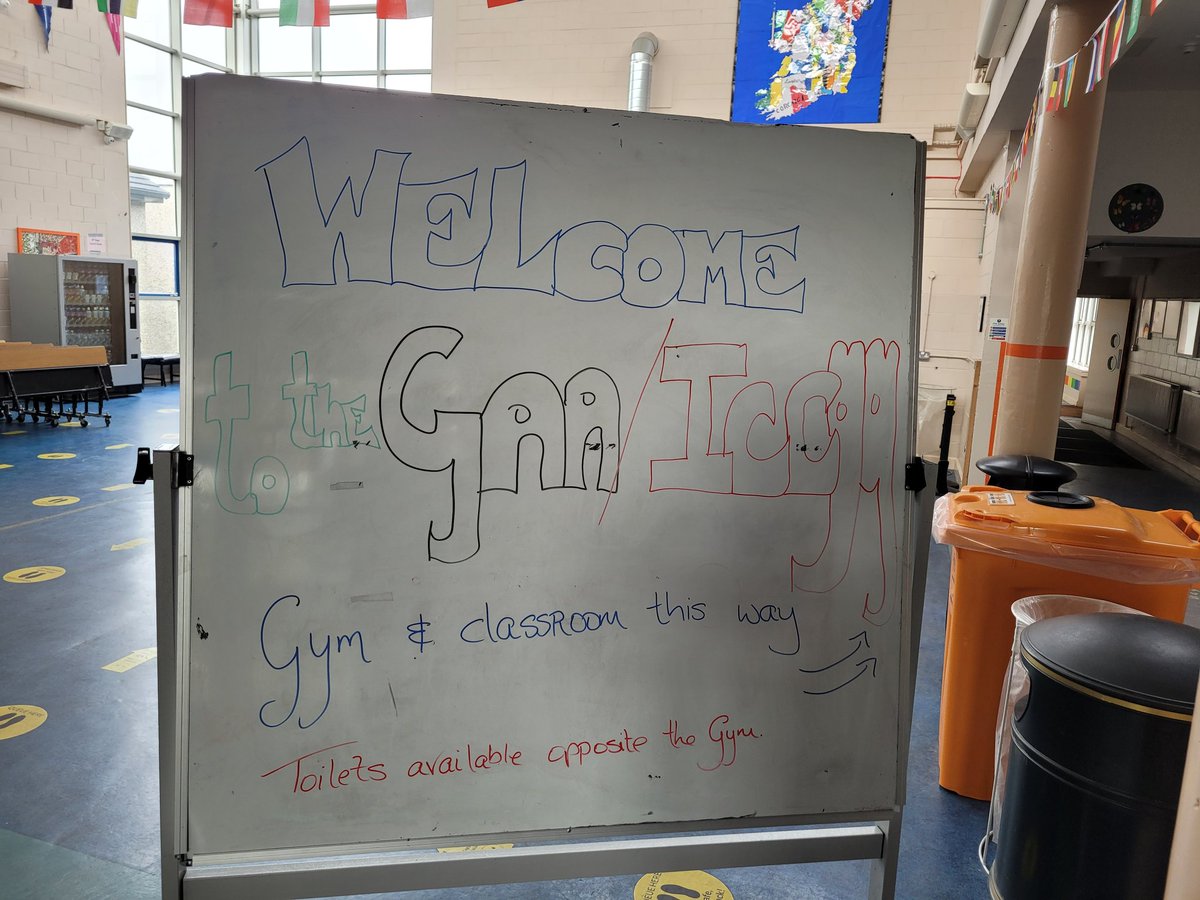 WELCOME
to the GAA/ICCYM
Gym & classroom this way
Toilets available opposite the Gym.